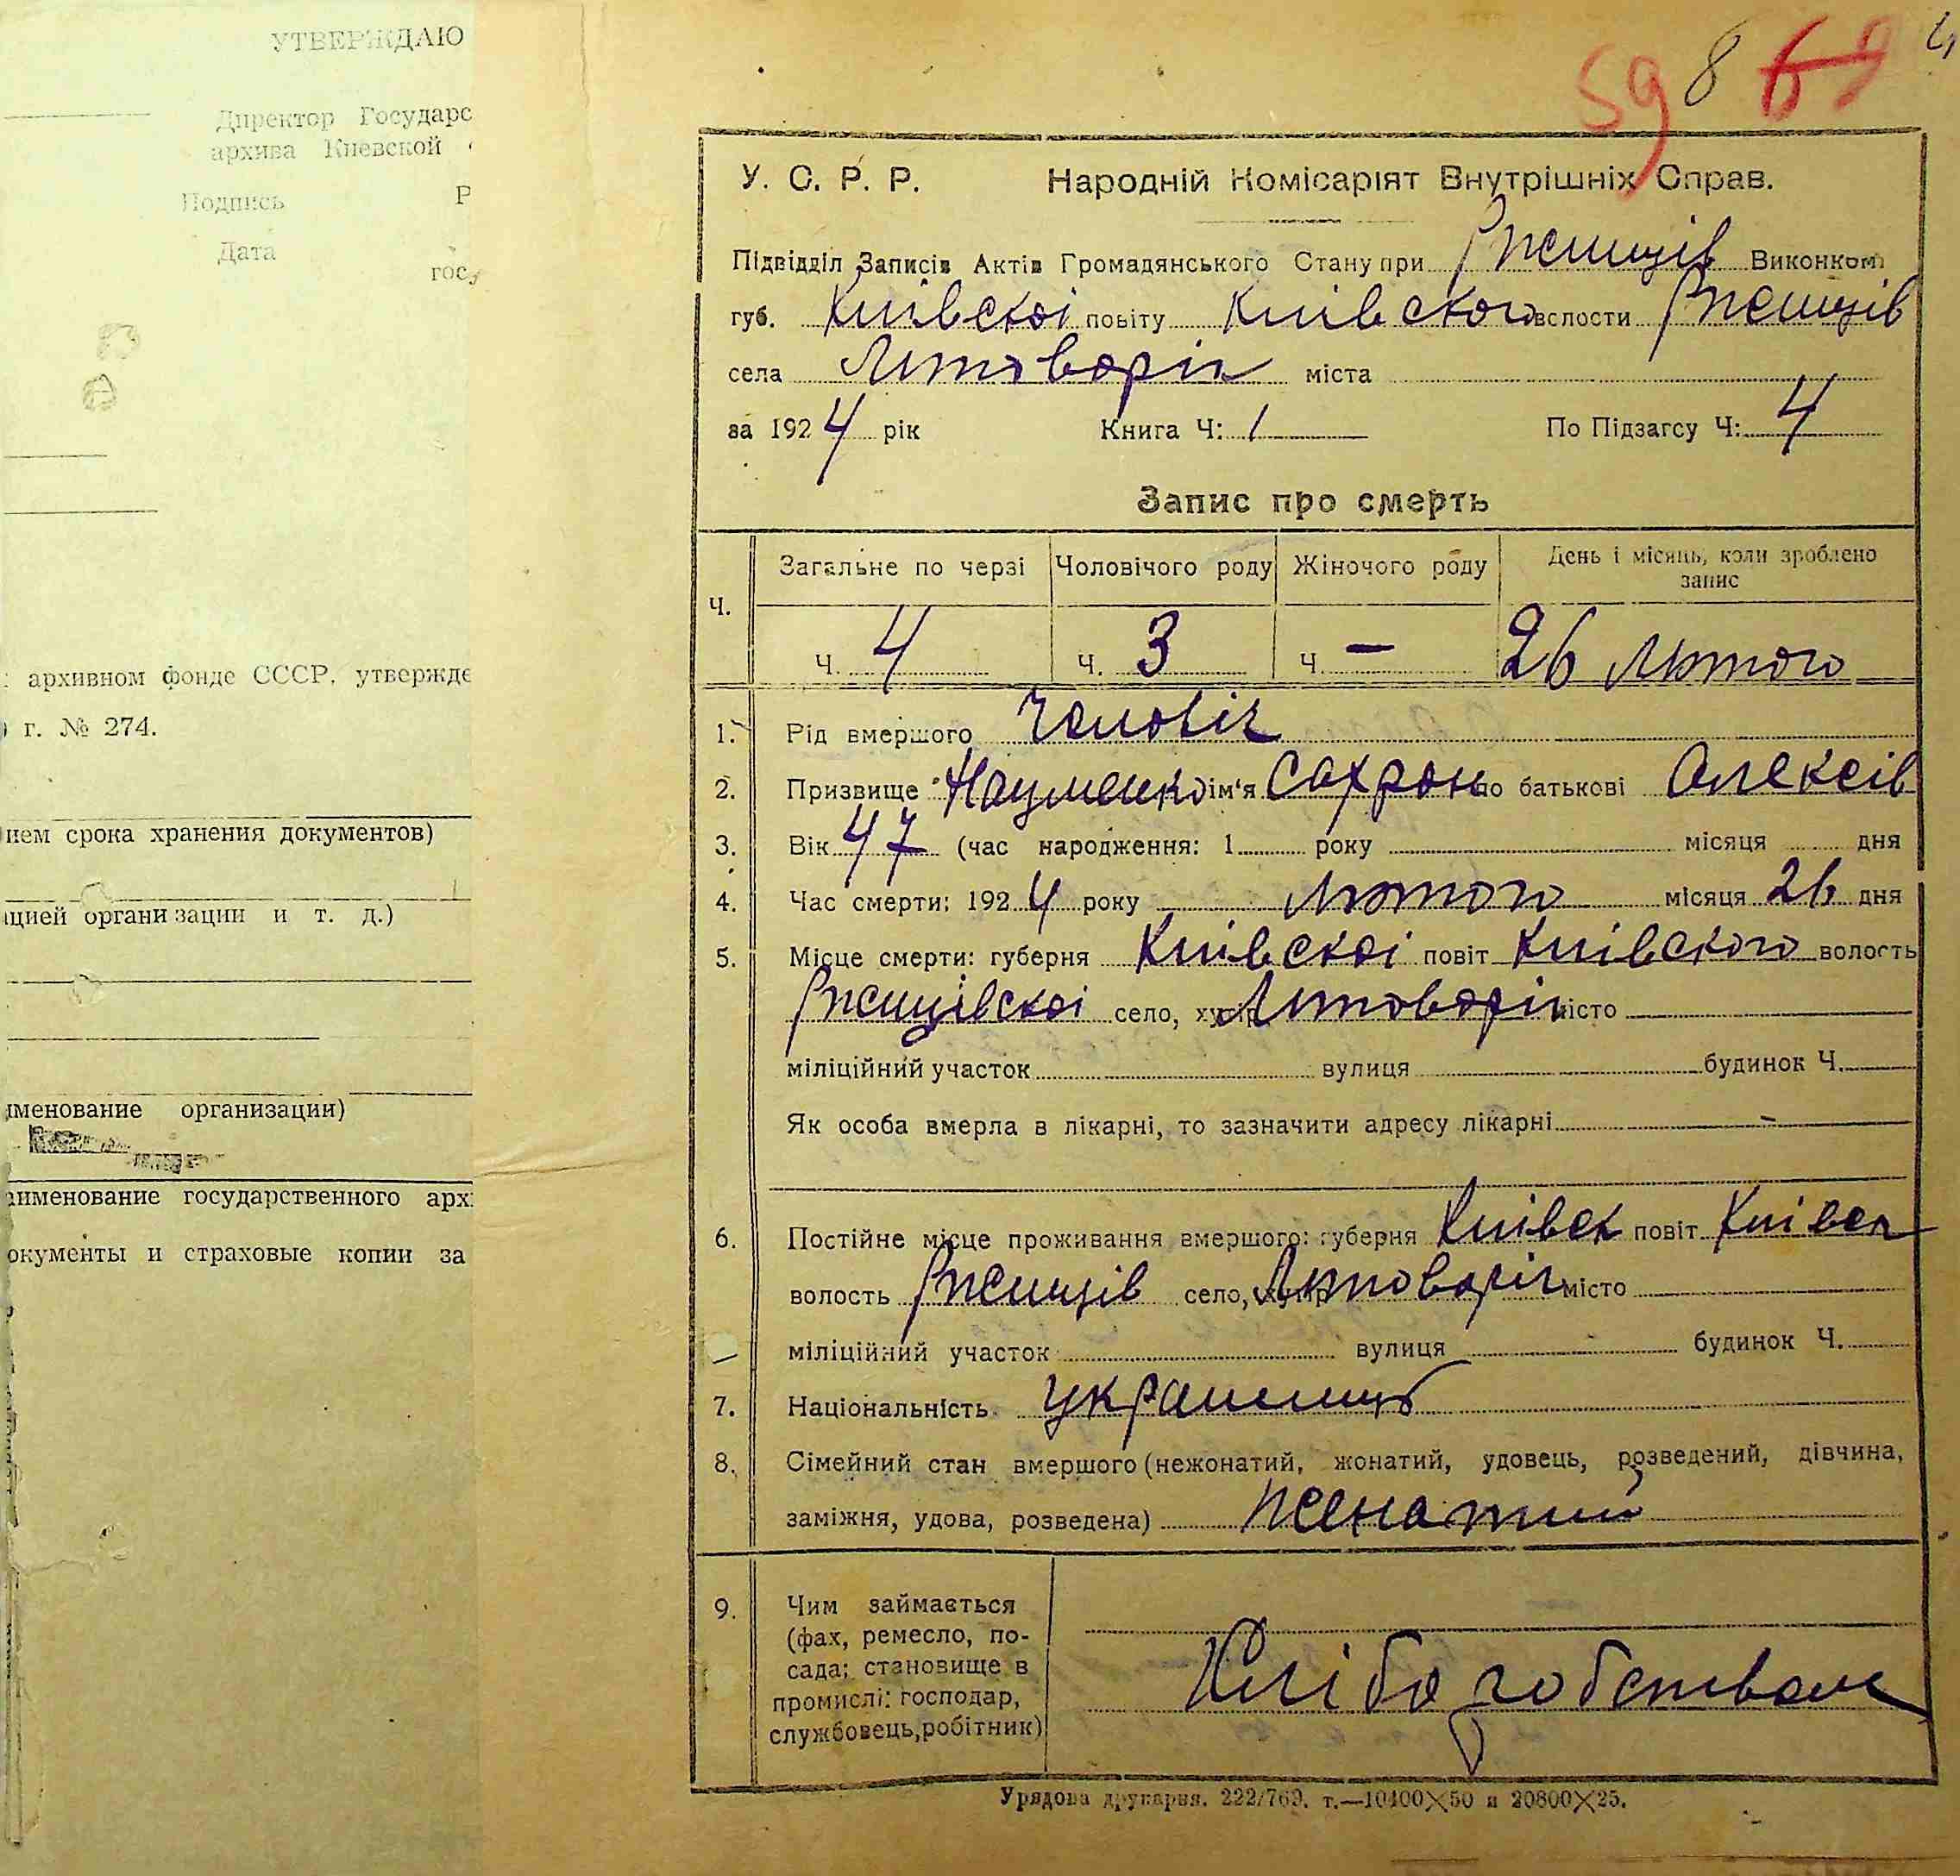 УТВЕРЖДАЮ
Директор Государс
архива Киевской
Подпись Р
Дата
гос
архивном фонде СССР, утвержде
г. № 274.
нем срока хранения документов)
ацией организации и т. д.)
именование организации)
аименование государственного арх
окументы и страховые копии за
59 8 69 4
У. С. Р. Р. Народній Комісаріят Внутрішніх Справ.
Підвідділ Записів Актів Громадянського Стану при Ржищів Виконком
губ. Київскоі повіту Київского волости Ржищів
села Литовори міста
за 1924 рік Книга Ч: 1 По Підзагсу Ч: 4
Запис про смерть
Ч. Загальне по черзі Чоловічого роду Жіночого роду День і місяць, коли зроблено запис
Ч. 4 Ч. 3 Ч — 26 Лютого
1. Рід вмершого Чоловік
2. Призвище Науменко ім'я Сахрон по батькові Олексів
3. Вік 47 (час народження: 1 року місяця дня
4. Час смерти: 1924 року Лютого місяця 26 дня
5. Місце смерти: губерня Київскоі повіт Київского волость
Ржищівскоі село, хутір місто
міліційний участок вулиця будинок Ч.
Як особа вмерла в лікарні, то зазначити адресу лікарні –
6. Постійне місце проживання вмершого: губерня Київск повіт Київск
волость Ржищів село, хутір місто
міліційний участок вулиця будинок Ч.
7. Національність украинець
8. Сімейний стан вмершого (нежонатий, жонатий, удовець, розведений, дівчина,
заміжня, удова, розведена) женатий
9. Чим займається
(фах, ремесло, по-
сада; становище в
промислі: господар,
службовець, робітник)
Хлібо
Урядова друкарня. 222/769. т.—10400×50 и 20800×25.